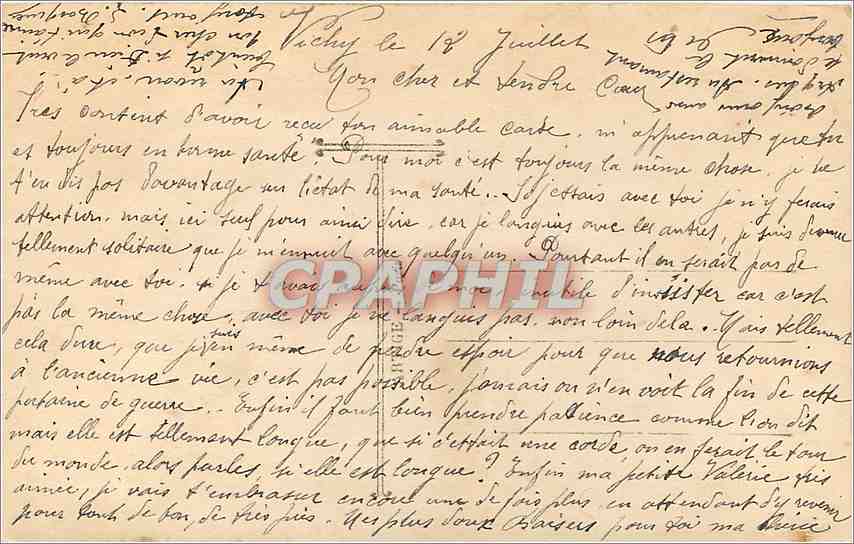 Vichy le 12 Juillet
Mon cher et tendre Cœur
Tres content d'avoir reçu ton aimable carte, m'apprenant que tu
et toujours en bonne santé. Pour moi c'est toujours la même chose, je ne
t'en dis pas davantage sur l'état de ma santé.. Si j'ettais avec toi je n'y ferais
attention, mais ici seul pour ainsi dire, car je languis avec les autres, je suis devenu
tellement solitaire que je m'ennuit avec quelqu'un. Pourtant il en serait pas de
même avec toi, si je t'avais inutile d'insister car c'est
pas la même chose, avec toi je ne languis pas, non loin de la. Mais tellement
cela dure, que j'en suis même de perdre espoir pour que nous retournions
à l'ancienne vie, c'est pas possible, jamais on n'en voit la fin de cette
putaine de guerre.. Enfin il faut bien prendre patience comme l'on dit
mais elle est tellement longue, que si c'ettait une corde, on en ferait le tour
du monde, alors parles si elle est longue? Enfin ma petite Valérie très
aimée, je vais t'embrasser encore une de fois plus, en attendant d'y revenir
pour tout de bon, de très près. Mes plus doux Baisers pour toi ma
CPARAMA